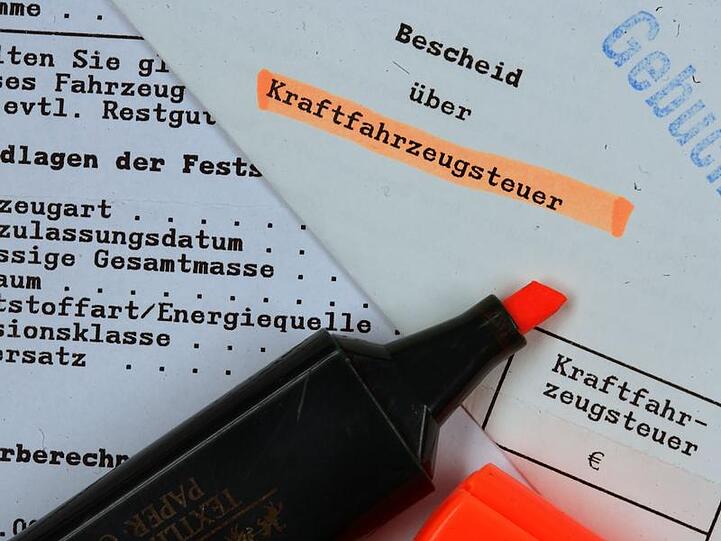 mme . .
lten Sie gl
ses Fahrzeug
evtl. Restgut
dlagen der Fests
zeugart . . . . . .
zulassungsdatum . .
ssige Gesamtmasse . .
aum . . . . . . . . .
tstoffart/Energiequelle .
sionsklasse . . . .
ersatz . . . .
rberechn
Bescheid
über
Kraftfahrzeugsteuer
Gebuc
Kraftfahr-
zeugsteuer
€
TEXTLI
PAPER